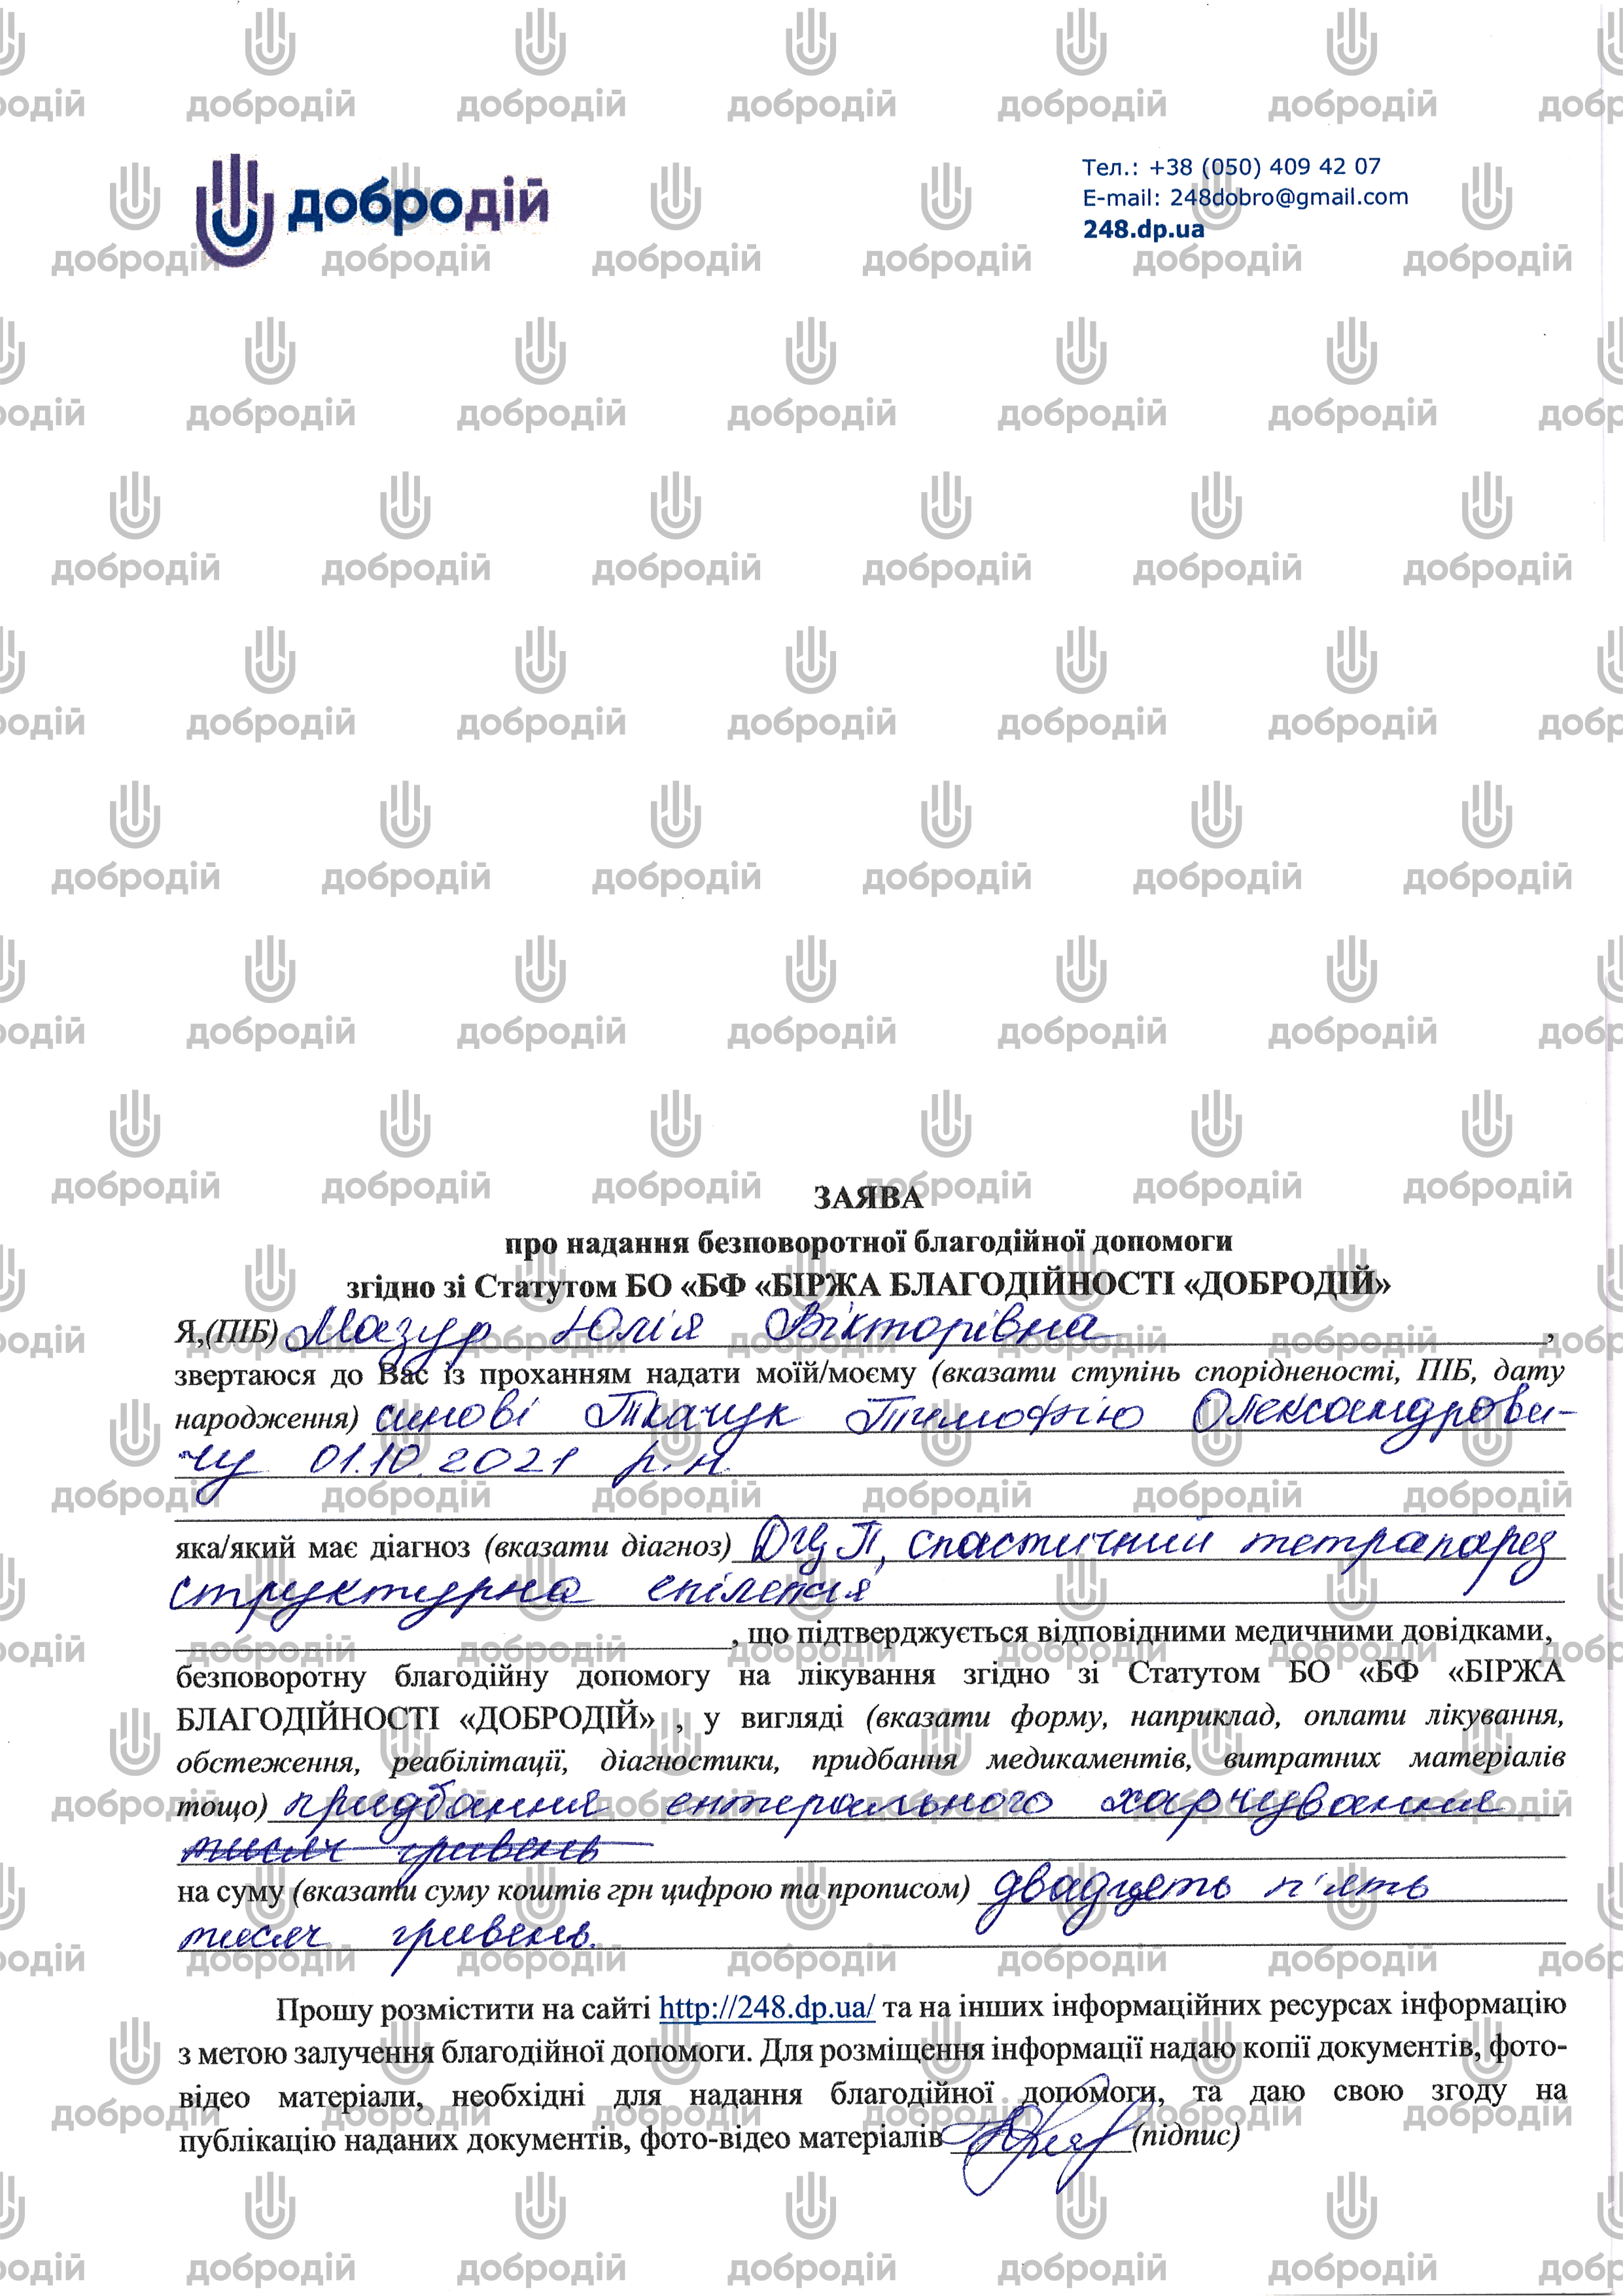 добродій
Тел.: +38 (050) 409 42 07
E-mail: 248dobro@gmail.com
248.dp.ua
ЗАЯВА
про надання безповоротної благодійної допомоги
згідно зі Статутом БО «БФ «БІРЖА БЛАГОДІЙНОСТІ «ДОБРОДІЙ»
Я,(ПІБ) Мазур Юлія Вікторівна,
звертаюся до Вас із проханням надати моїй/моєму (вказати ступінь спорідненості, ПІБ, дату
народження) синові Ткачук Тимофію Олександрови-
чу 01.10.2021 р.н.
яка/який має діагноз (вказати діагноз) ДЦП, спастичний тетрапарез
структурна епілепсія
, що підтверджується відповідними медичними довідками,
безповоротну благодійну допомогу на лікування згідно зі Статутом БО «БФ «БІРЖА
БЛАГОДІЙНОСТІ «ДОБРОДІЙ» , у вигляді (вказати форму, наприклад, оплати лікування,
обстеження, реабілітації, діагностики, придбання медикаментів, витратних матеріалів
тощо) придбання ентерального харчування
тисяч гривень
на суму (вказати суму коштів грн цифрою та прописом) двадцять п'ять
тисяч гривень.
Прошу розмістити на сайті http://248.dp.ua/ та на інших інформаційних ресурсах інформацію
з метою залучення благодійної допомоги. Для розміщення інформації надаю копії документів, фото-
відео матеріали, необхідні для надання благодійної допомоги, та даю свою згоду на
публікацію наданих документів, фото-відео матеріалів (підпис)